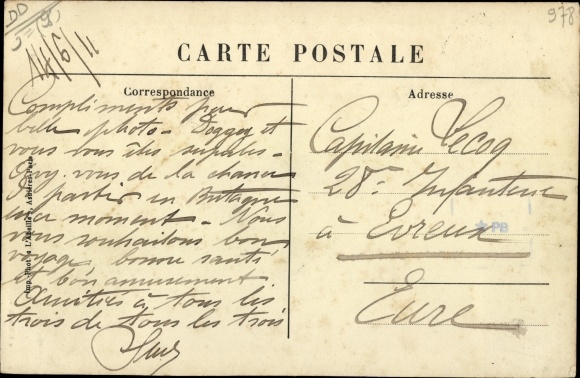 DD
978
14/6/11
CARTE POSTALE
Correspondance
Adresse
Compliments pour
belle photo - Doggey et
vous tous êtes superbes -
vous de la chance
de partir en Bretagne
en ce moment - Nous
vous souhaitons bon
voyage bonne santé
et bon amusement
Amitiés à tous les
trois de tous les trois
Capitaine Lecoq
28e Infanterie
à Evreux
Eure
PB